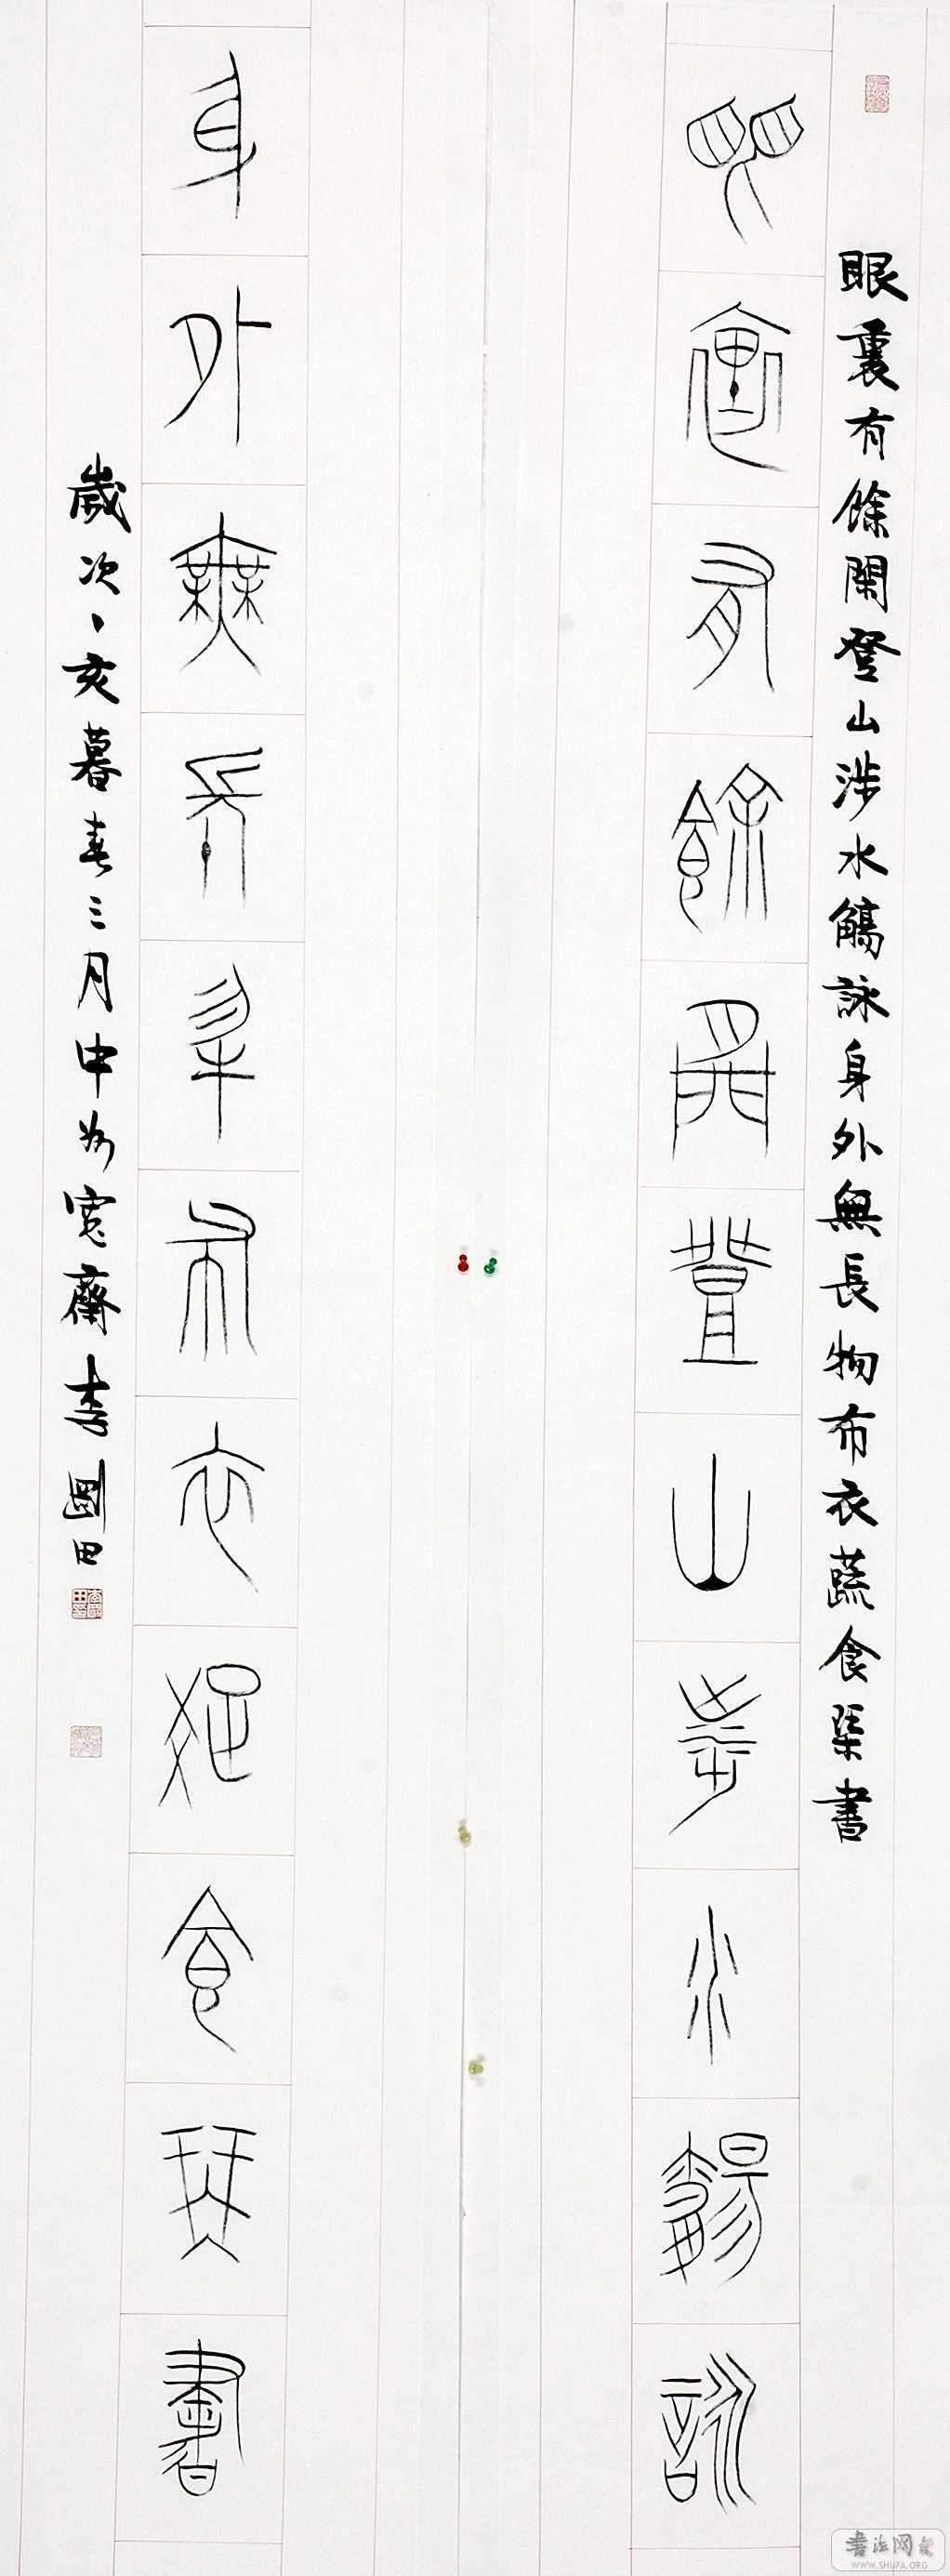 眼裏有餘閑登山涉水觴詠身外無長物布衣蔬食琹書
眼裏有餘閒登山涉水觴詠
身外無長物布衣疏食琴書
歲次丁亥暮春三月中州寬齋李剛田
書法网
WWW.SHUFA.ORG